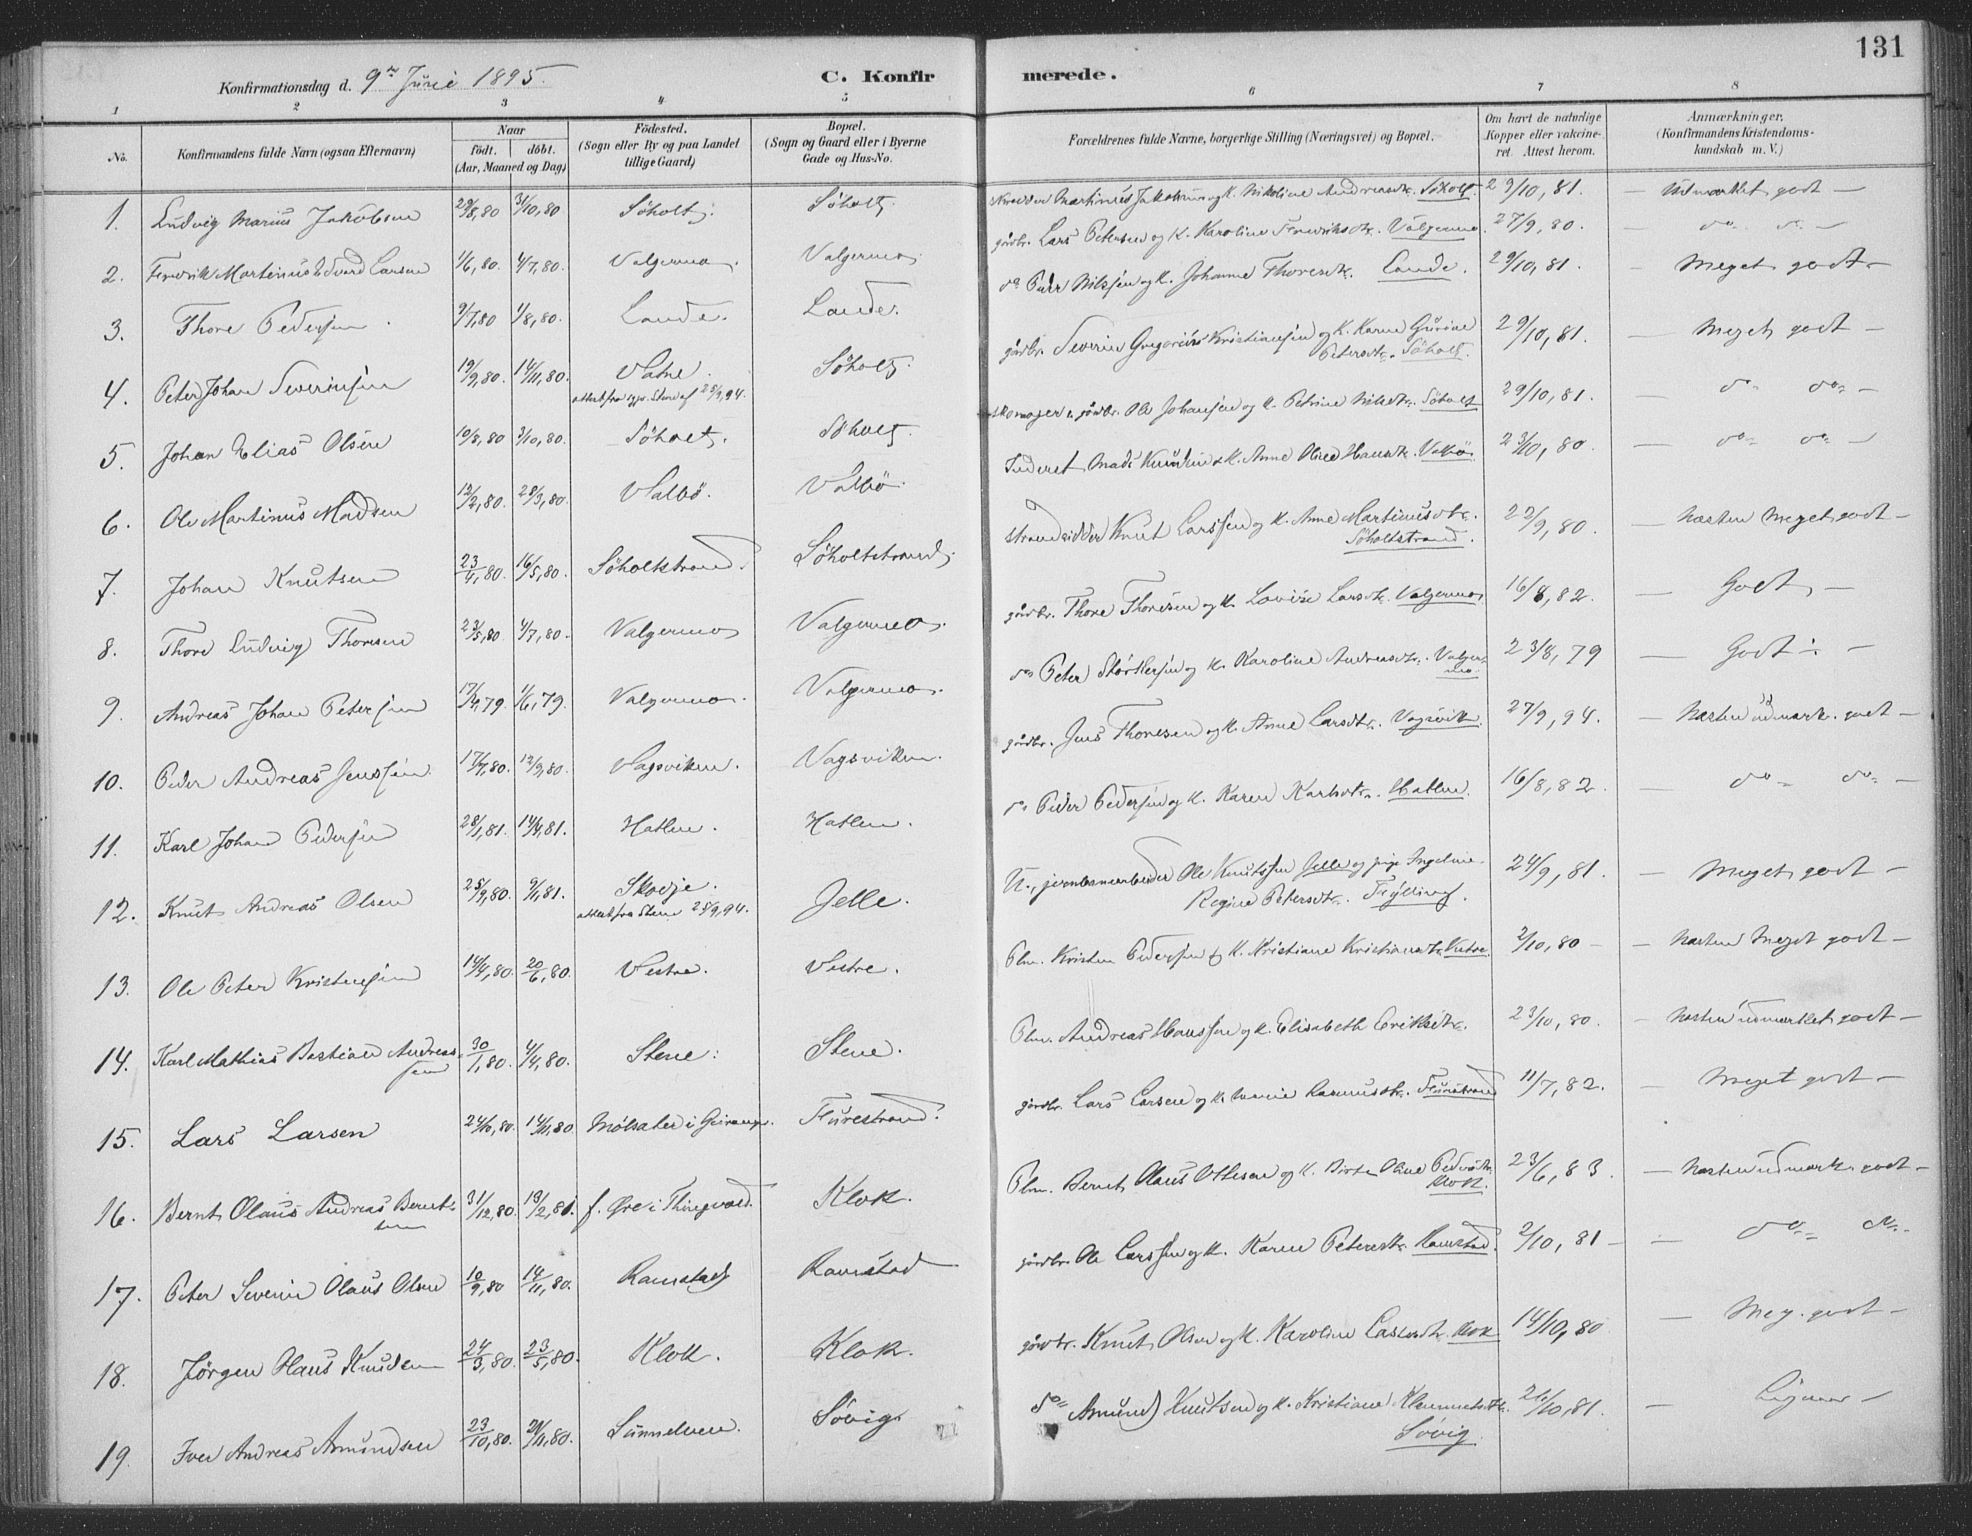 131
Konfirmationsdag d. 9de Juni 1895. C. Konfirmerede.
1 2 3 4 5 6 7 8
No. Konfirmandens fulde Navn (ogsaa Efternavn) Naar født. døbt. (Aar, Maaned og Dag) Födested. (Sogn eller By og paa Landet tillige Gaard) Bopæl. (Sogn og Gaard eller i Byerne Gade og Hus-No. Forældrenes fulde Navne, borgerlige Stilling (Næringsvei) og Bopæl. Om havt de naturlige Kopper eller vakcineret. Attest herom. Anmærkninger. (Konfirmandens Kristendomskundskab m. V.)
1. Ludvig Marius Jakobsen 29/8,80 31/10,80 Söholt. Söholt. Martinus Jakobsen og K. Nikoline Andreasdtr. Söholt. 29/10,81. — Udmærket godt —
2. Fredrik Martinus Edvard Larsen 1/6,80. 4/7,80. Valgermo. Valgermo. gårdbr. Lars Petersen og K. Karoline Fredriksdtr. Valgermo. 27/9,80. — do do —
3. Thore Pedersen 9/7,80 1/8,80. Lande. Lande. do Peder Nilssen og K. Johanne Thoresdtr. Lande. 29/10,81. — Meget godt —
4. Peter Johan Severinsen 19/9,80. 14/11,80. Vatne. Söholt. gårdbr. Severin Gregorius Kristiansen og K. Karen Gurine Petersdtr. Söholt. 29/10,81. — Meget godt —
attest fra 25/9,94.
5. Johan Elias Olsen 10/8,80 31/10,80. Söholt. Söholt. skomager & gårdbr. Ole Johansen og K. Petrine Nilsdtr. Söholt 29/10,81. — do do —
6. Ole Martinus Madsen 12/2,80. 28/3,80. Valbö. Valbö. Inderst Mads Knudsen & K. Anne Oline Hansdtr. Valbö. 23/10,80. — do do —
7. Johan Knutsen 23/4,80. 16/5,80. Söholtstrand. Söholtstrand. strandsidder Knut Larssen og K. Anne Martinusdtr. Söholtstrand. 22/9,80. — Næsten Meget godt —
8. Thore Ludvig Thoresen 23/5,80. 4/7,80. Valgermo Valgermo. gårdbr. Thore Thoresen og K. Lovise Larsdtr. Valgermo 16/8,82. — Godt —
9. Andreas Johan Petersen 17/4,79. 1/6,79. Valgermo. Valgermo. do Peter Störkersen og K. Karoline Andreasdtr. Valgermo 23/8,79 — Godt —
10. Peder Andreas Jenssen 17/7,80. 12/9,80. Vagsviken. Vagsviken. gårdbr. Jens Thoresen og K. Anne Larsdtr. Vagsvik. 27/9,94. — Næsten udmærk. godt —
11. Karl Johan Pedersen 28/1,81. 14/4,81. Hatlen. Hatlen. do Peder Pedersen og K. Karen Hatlen. 16/8,82. — do do —
12. Knut Andreas Olsen 25/9,80. 9/1,81. Skodje. Jelle. U., jernbanearbeider Ole Knutssen Jelle og pige Ingeline Regine Petersdtr. Fylling. 24/9,81. — Meget godt —
attest fra Stene 25/9,94.
13. Ole Peter Kristensen 14/4,80. 20/6,80. Vestre. Vestre. Plm. Kristen Pedersen & K. Kristiane Kristiansdtr. Vestre. 2/10,80 — Næsten Meget godt —
14. Karl Mathias Bastian Andreassen 30/1,80. 4/4,80. Stene. Stene. Plm. Andreas Hanssen og K. Elisabeth Eriksdtr. 23/10,80. — Næsten udmærket godt —
15. Lars Larsen 24/10,80. 14/11,80 i Geiranger. Furestrand. gårdbr. Lars Larsen og K. Marie Rasmusdtr. Furestrand 11/7,82. — Meget godt —
16. Bernt Olaus Andreas Berntsen 31/12,80. 13/2,81. f. Øre i Thingvold. Klok. Plm. Bernt Olaus Ottesen og K. Oline Pedersdtr. Klok. 23/6,83. — Næsten udmærk. godt —
17. Peter Severin Olaus Olsen 10/9,80 14/11,80. Ramstad Ramstad gårdbr. Ole Larssen og K. Karen Petersdtr. Ramstad. 2/10,81 — do do
18. Jörgen Hans Knudsen 24/3,80. 23/5,80. Klok. Klok. gårdbr. Knut Olsen og K. Karoline Klok 14/10,80 — Meg. godt —
19. Iver Andreas Amundsen 23/10,80. 21/11,80. Sunnelven. Sövig. do Amund Knutsen og K. Kristiane Sövig 21/10,81. —